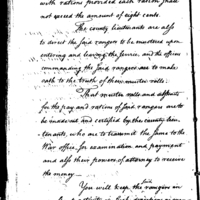 with rations provided each ration shall
not exceed the amount of eight cents.
The county lieutenants are also
to direct the said rangers to be mustered upon
entering and leaving the service, and the officer
commanding the said rangers are to make
oath to the truth of these muster rolls.
That muster rolls and abstracts
for the pay and rations of said rangers are to
be indorsed and certified by the county lieu-
tenants, who are to transmit the same to the
War office, for examination and payment
and also their powers of attorney to receive
the money.
You will keep the rangers in